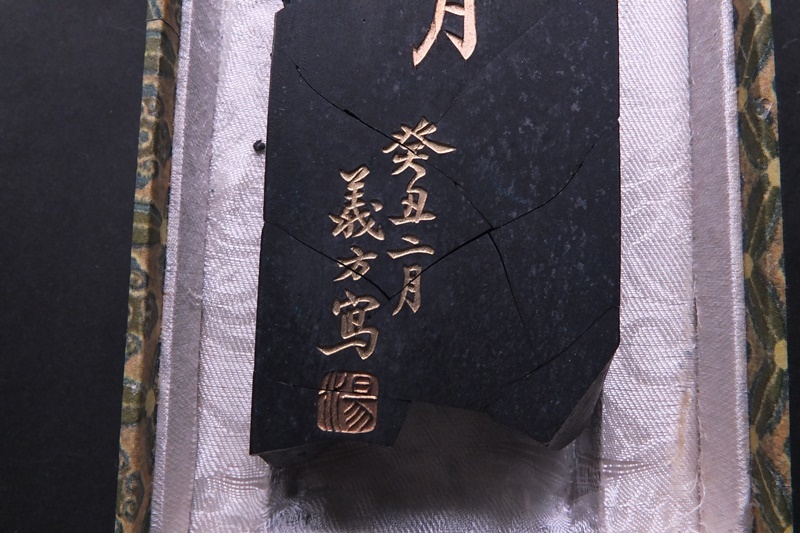 月
癸丑二月
義方寫
湯